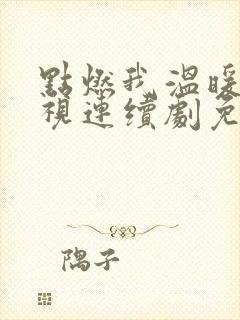 點燃我,溫暖
視連續劇免
隅子